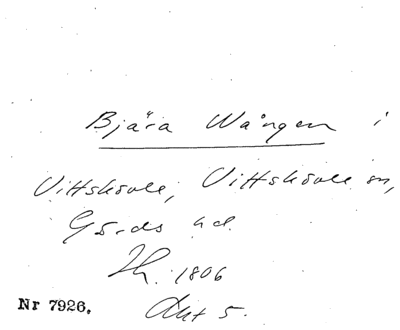 Bjära Wången i
Vittskövle, Vittskövle sn,
Gärds hd.
Th. 1806
Akt 5.
Nr 7926.